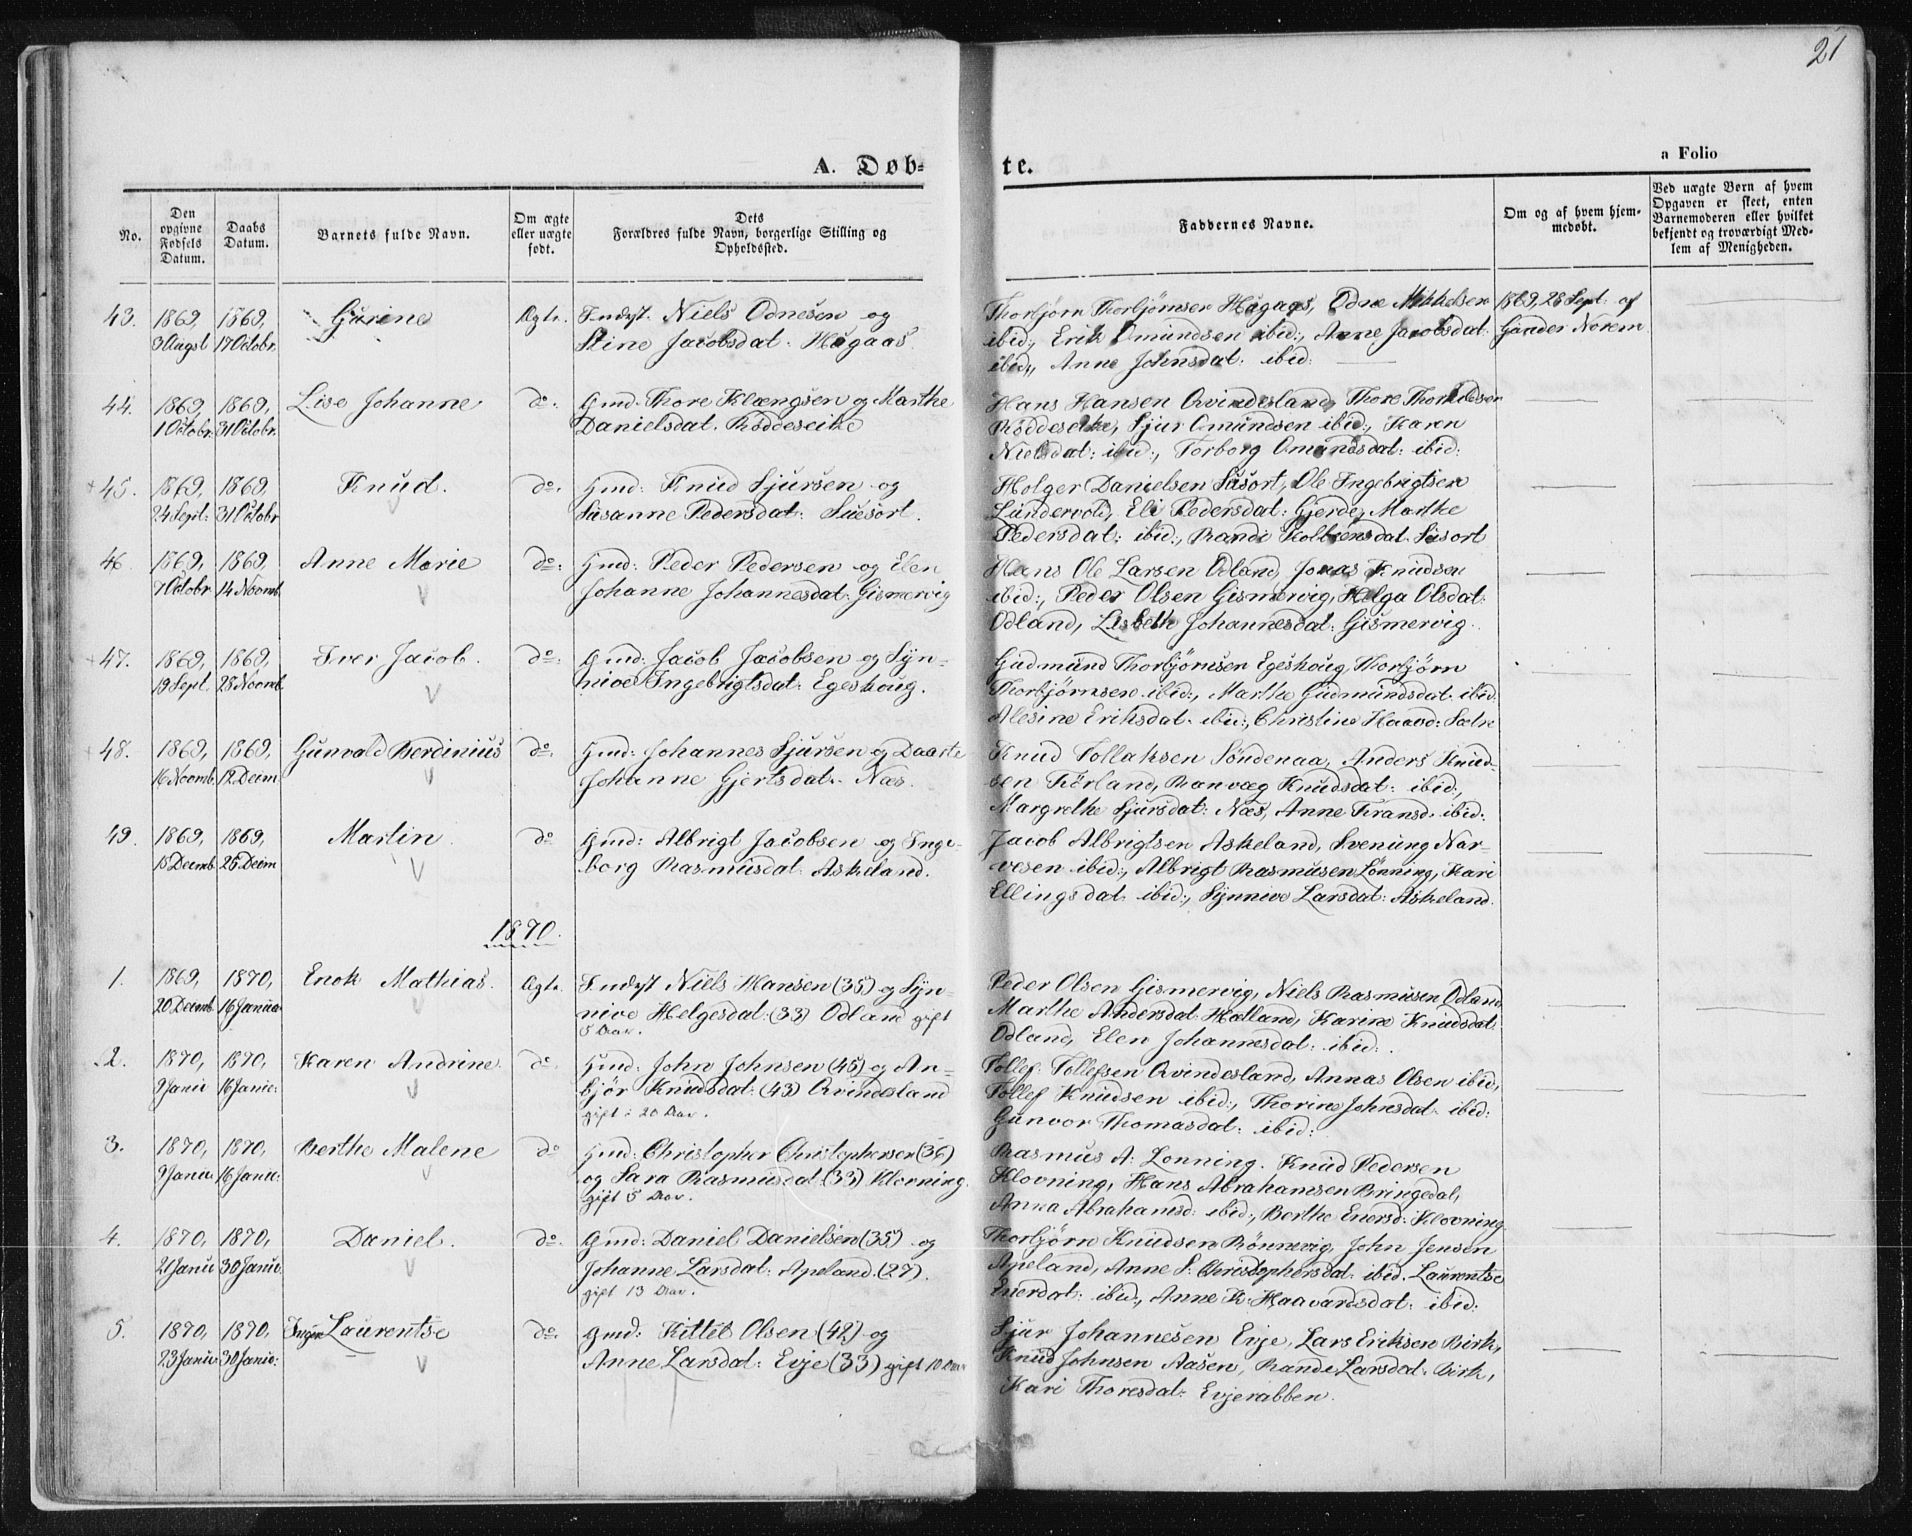 21
A. Døb-
te.
a Folio
No.
Den opgivne Fødsels Datum.
Daabs Datum.
Barnets fulde Navn.
Om ægte eller uægte født.
Dets Forældres fulde Navn, borgerlige Stilling og Opholdssted.
Faddernes Navne.
Om og af hvem hjemmedøbt.
Ved uægte Børn af hvem Opgaven er skeet, enten Barnemoderen eller hvilket bekjendt og troværdigt Medlem af Menigheden.
43. 1869, 1869, Gurine Ægte. Indst. Niels Odnesen og
3 Augst 17 Octobr. Stine Jacobsdat. Hågaas.
Thorbjørn Thorbjørnsen Hågaas, Odne Mikkelsen 1869, 28 Sept. af
ibid:, Erik Omundsen ibid:, Anne Jacobsdat. Gunder Norem
ibid:, Anne Johnsdat. ibid:
44. 1869, 1869, Lise Johanne do. Gmd: Thore Klængsen og Marthe
1 Octobr. 31 Octobr. Danielsdat. Røddeseike
Hans Hansen Qvindesland, Thore Thorkildsen
Røddeseike, Sjur Omundsen ibid:, Karen
Nielsdat: ibid:, Torborg Omundsdat: ibid:
45. 1869, 1869, Knud. do. Gmd: Knud Sjursen og
24 Sept: 31 Octobr Susanne Pedersdat: Susort.
Holger Danielsen Susort, Ole Ingebrigtsen
Lundervold, Eli Pedersdat: Gjerde, Marthe
Pedersdat: ibid:, Randi Kolbensdat. Susort
46. 1869, 1869, Anne Marie do: Gmd: Peder Pedersen og Elen
7 Octobr 14 Novmb. Johanne Johannesdat: Gismervig
Hans Ole Larsen Odland, Jonas Knudsen
ibid:, Peder Olsen Gismervig, Helga Olsdat:
Odland, Lisbeth Johannesdat: Gismervig.
47. 1869, 1869, Iver Jacob. do: Gmd: Jacob Jacobsen og Syn-
19 Sept. 28 Novmb. nive Ingebrigtsdat: Egeskoug.
Gudmund Thorbjørnsen Egeskoug, Thorbjørn
Thorbjørnsen ibid:, Marthe Gudmundsdat. ibid:
Alesine Eriksdat. ibid:, Christine Haavd: Sætre
48. 1869, 1869, Gunvald Berdinius do. Gmd: Johannes Sjursen og Daarte
16 Novmb. 12 Decm. Johanne Gjertsdat. Næs.
Knud Tollaksen Søndenaa, Anders Knud-
sen Førland, Ranvæg Knudsdat: ibid:,
Margrethe Sjursdat: Næs, Anne Fransd. ibid:
49. 1869, 1869, Martin. do Gmd: Albrigt Jacobsen og Inge-
15 Decmb. 26 Decm borg Rasmusdat: Askeland.
Jacob Albrigtsen Askeland, Svenung Nar-
vesen ibid:, Albrigt Rasmusen Lønning, Kari
Ellingsdat. ibid:, Synnive Larsdat: Askeland.
1870.
1. 1869, 1870, Enok Mathias. Ægte. Indst Niels Hansen (35) og Syn-
20 Decmb. 16 Januar nive Helgesdat: (33) Odland gift
5 Aar.
Peder Olsen Gismervig, Niels Rasmusen Odland
Marthe Andersdat. Hålland, Karine Knudsdat.
Odland, Elen Johannesdat: ibid:.
2. 1870, 1870, Karen Andrine do Gmd: John Johnsen (45) og An-
9 Janu 16 Janu: bjør Knudsdat: (43) Qvindesland
gift: 20 Aar.
Tollef Tollefsen Qvindesland, Annas Olsen ibid,
Tollef Knudsen ibid:, Thorine Johnsdat. ibid:
Gunvor Thomasdat: ibid:
3. 1870, 1870, Berthe Malene do Gmd: Christopher Christophersen (36)
9 Janu 16 Janu: og Sara Rasmusdat (33) Klovning.
gift 5 Aar.
Rasmus A: Lønning. Knud Pedersen
Klovning, Hans Abrahamsen Bringedal,
Anna Abrahamsd: ibid:, Berthe Enersd: Klovning
4. 1870, 1870, Daniel. do. Gmd: Daniel Danielsen (35) og
21 Janu 30 Janu. Johanne Larsdat: Apeland. (27).
gift 13 Aar.
Thorbjørn Knudsen Rønnevig, John Jensen
Apeland, Anne S: Christophersdat: ibid. Laurentse
Enerdat: ibid:, Anne K. Haavardsdat: ibid:
5. 1870, 1870, Inger Laurentse do. Gmd: Kittel Olsen (42) og
23 Janu 30 Janu: Anne Larsdat: Evje (33) gift 10 Aar
Sjur Johannesen Evje, Lars Eriksen Birk,
Knud Johnsen Aasen, Rande Larsdat. Birk,
Kari Thoresdat: Evjerabben.